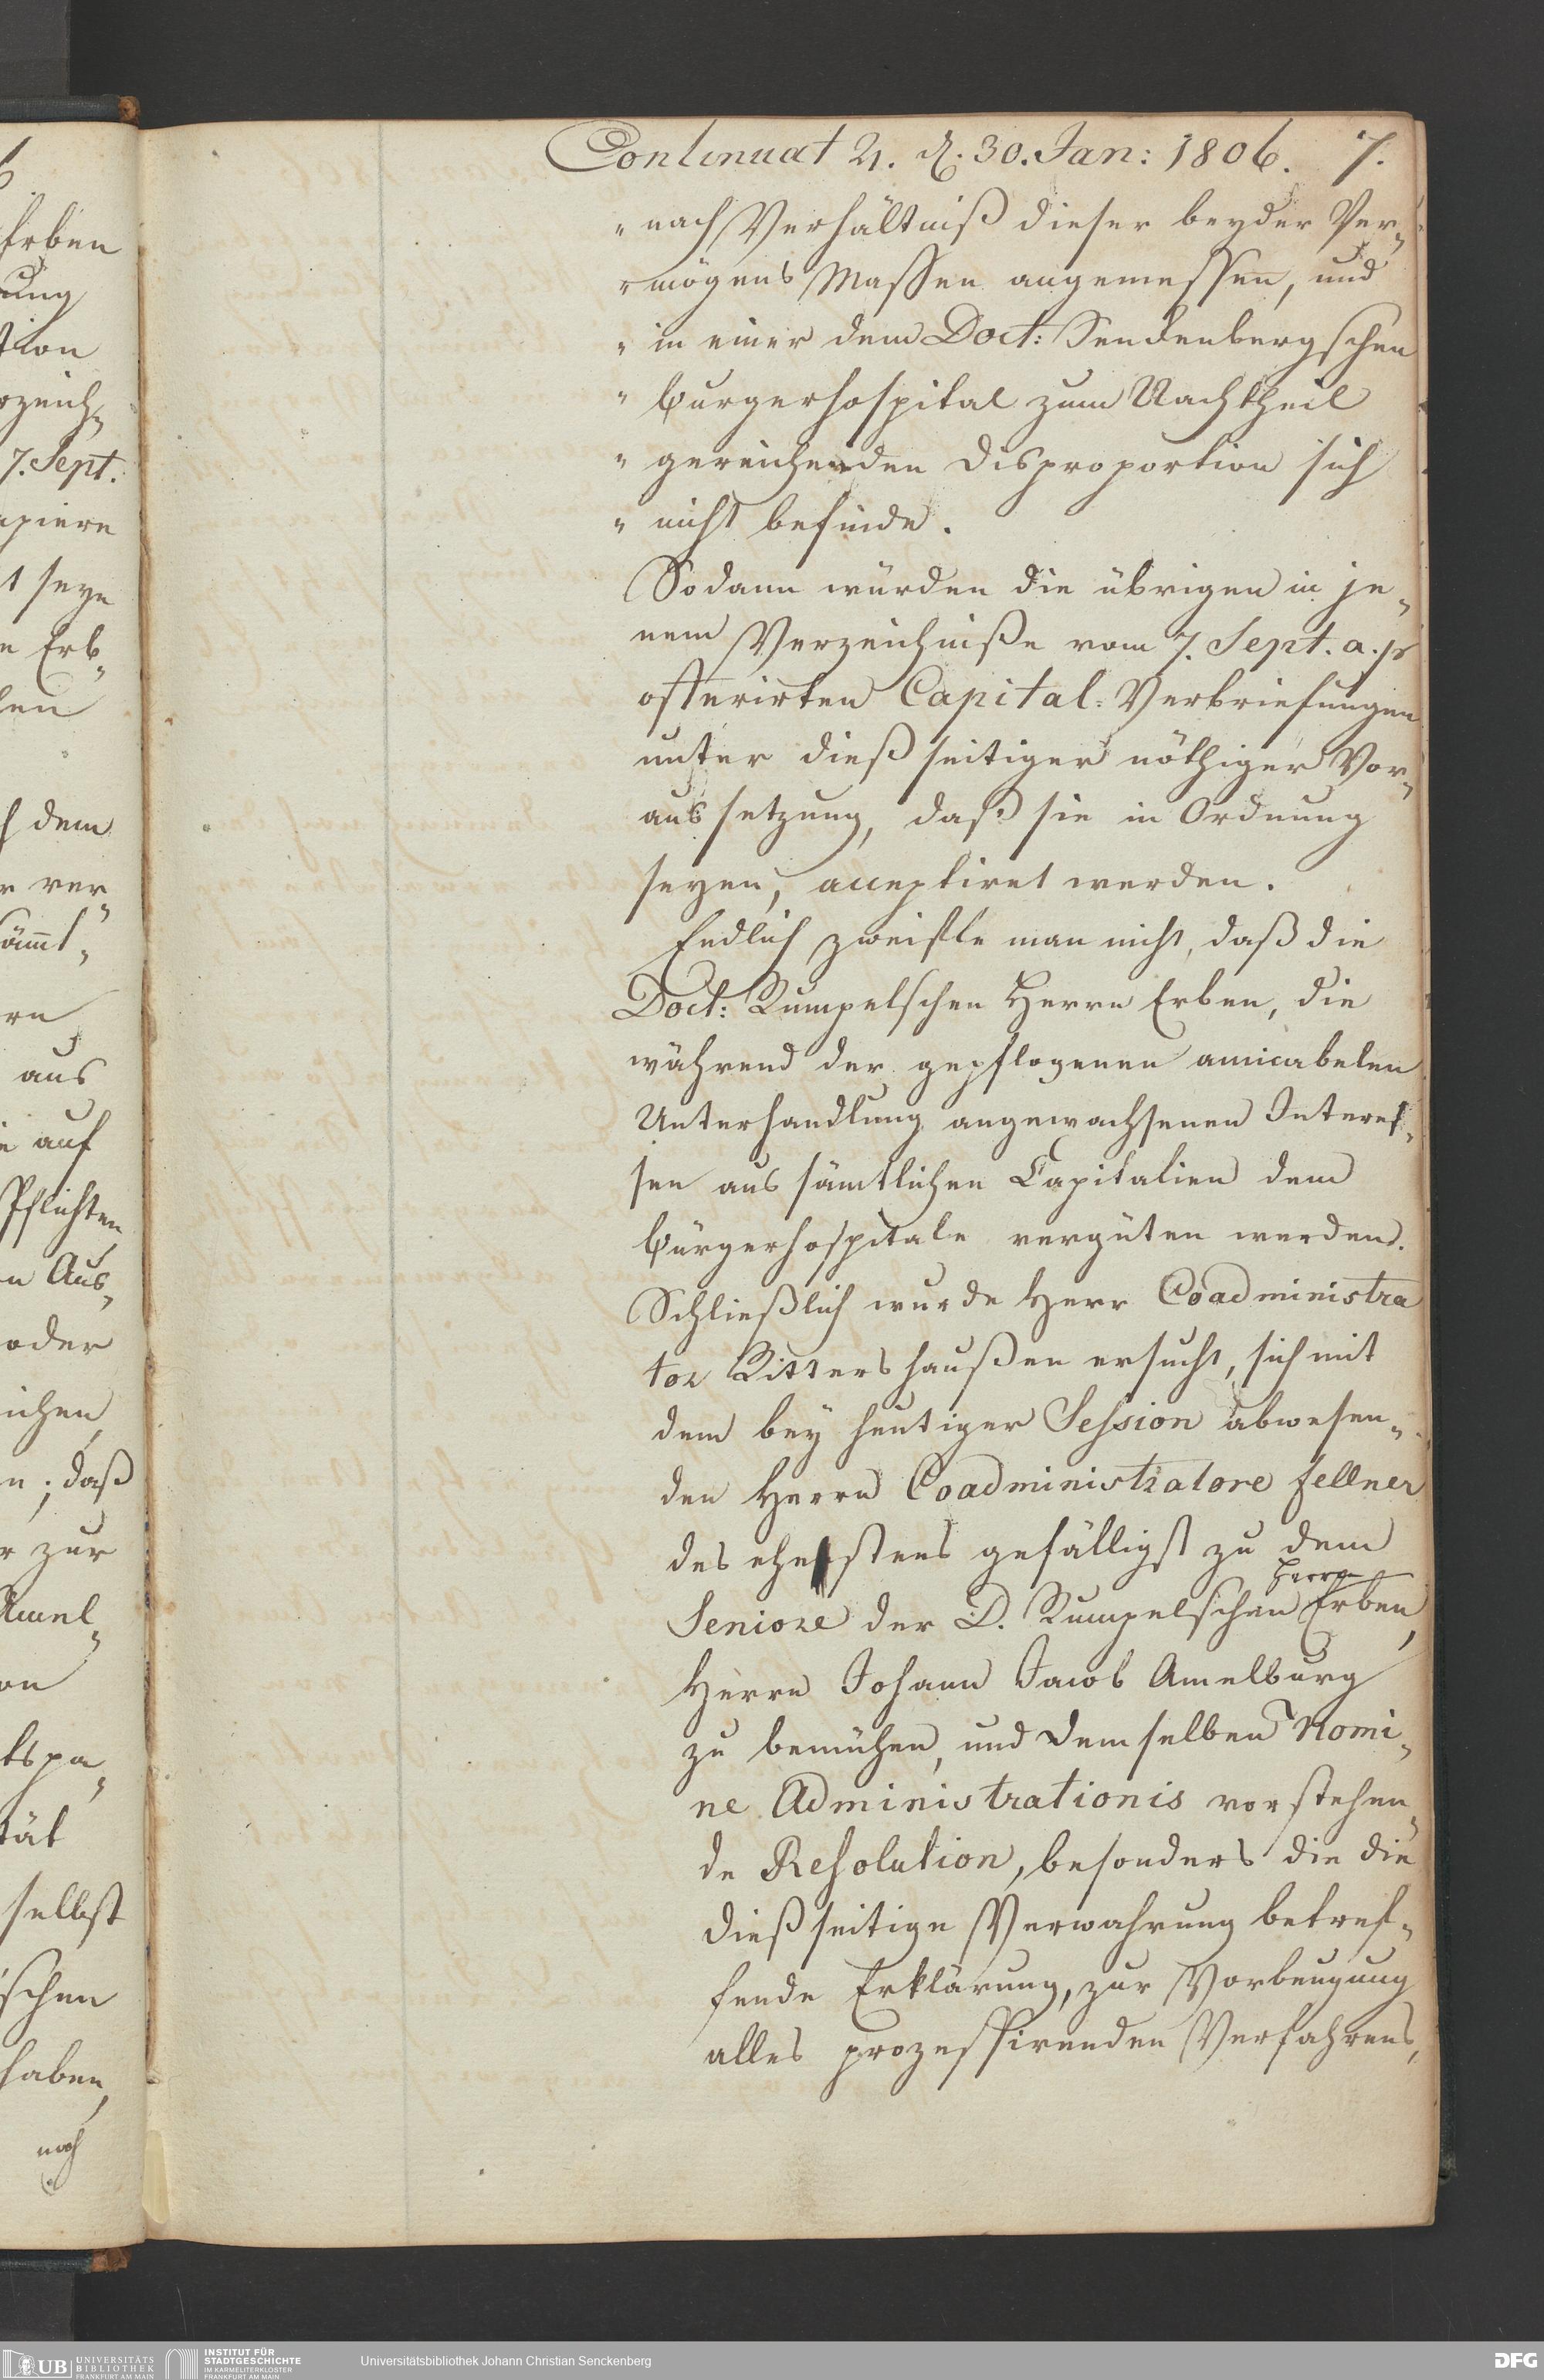 Continuat 21. d. 30. Jan: 1806. 7.
" nach Verhältniß dieser beyder Ver„
" mögens Massen angemessen, und
" in einer dem Doct: Senckenbergschen
" Burgerhospital zum Nachtheil
" gereichenden Disproportion sich
" nicht befinde.
Sodann würden die übrigen in je„
nem Verzeichniße vom 7. Sept. a. p.
offerirten Capital-Verbriefungen
unter dießseitiger nöthiger Vor„
aussetzung, daß sie in Ordnung
seyen, acceptiret werden.
Endlich zweifle man nicht, daß die
Doct: Rumpelschen Herrn Erben, die
während der gepflogenen amicabelen
Unterhandlung angewachsenen Interes„
sen aus sämtlichen Capitalien dem
Bürgerhospitale vergüten werden.
Schließlich wurde Herr Coadministra
tor Rittershaußen ersucht, sich mit
dem bey heutiger Session abwesen„
den Herrn Coadministratore Fellner
des ehestens gefälligst zu dem
Herrn
Seniore der D. Rumpelschen Erben,
Herrn Johann Jacob Amelburg
zu bemühen, und demselben Nomi„
ne Administrationis vorstehen„
de Resolution, besonders die die
dießseitige Verwahrung betref„
fende Erklärung, zur Vorbeugung
alles prozessirenden Verfahrens,
6
Erben
ung
tion
rzeich„
7. Sept.
apiere
t seye
e Erb„
len
h dem
r ver„
sämt„
ren
aus
ie auf
Pflichten
n Aus„
oder
ichen,
n; daß
r zur
Amel„
on
tspa„
tät
selbst
schen
haben,
noch
UB UNIVERSITÄTS
BIBLIOTHEK
FRANKFURT AM MAIN
INSTITUT FÜR
STADTGESCHICHTE
IM KARMELITERKLOSTER
FRANKFURT AM MAIN
Universitätsbibliothek Johann Christian Senckenberg
DFG